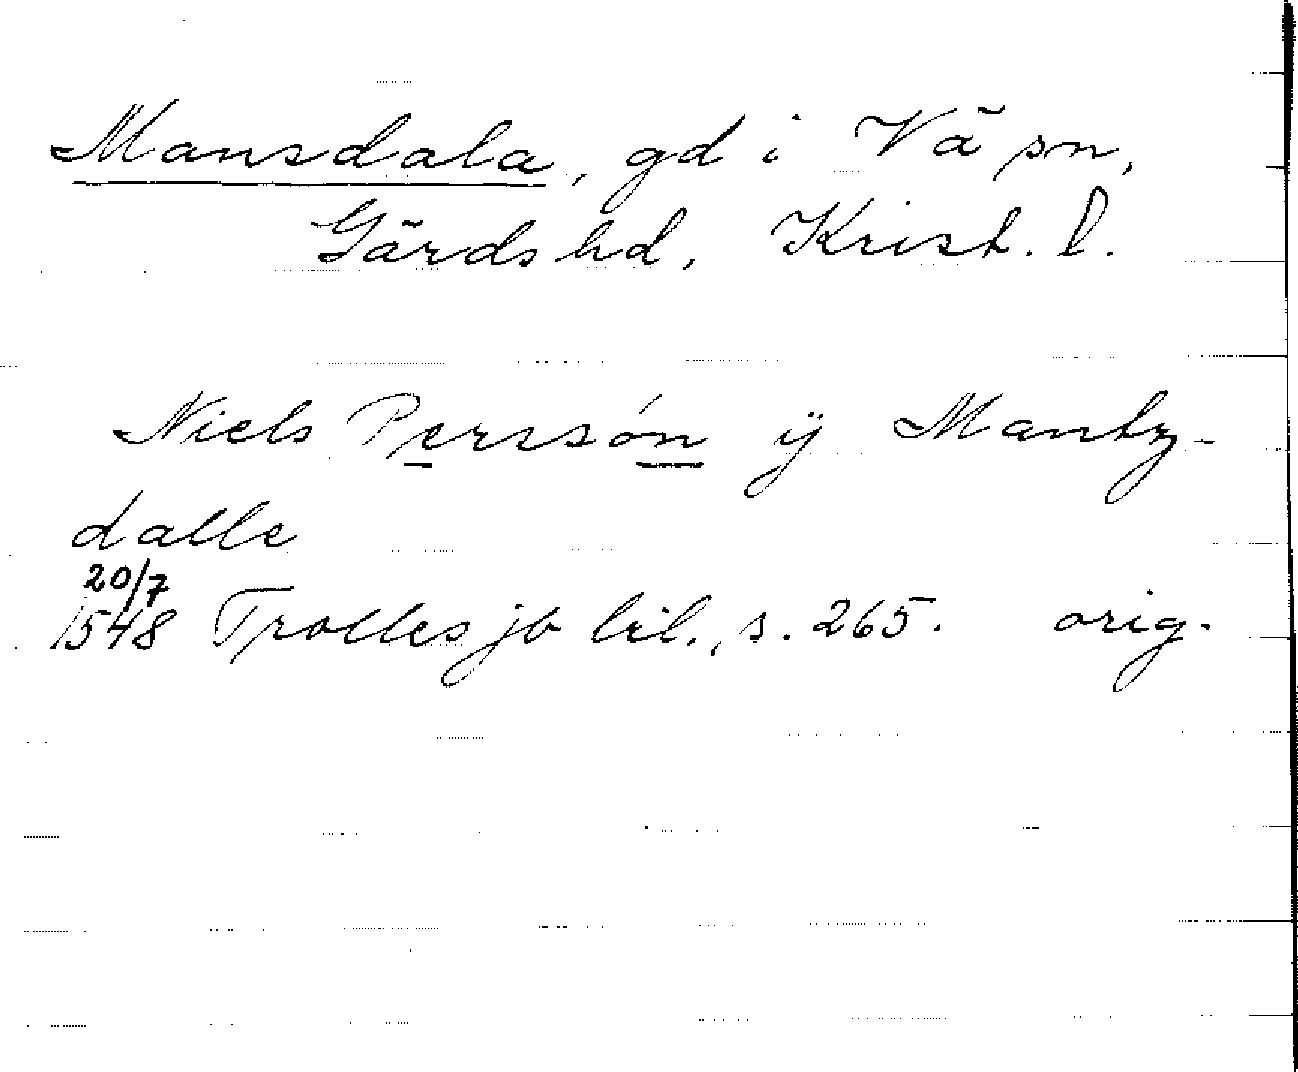 Mansdala, gd i Vä sn,
Gärds hd, Krist. l.
Niels Perssón ÿ Mantz-
dalle
20/7
1548 Trolles jb bil., s. 265. orig.